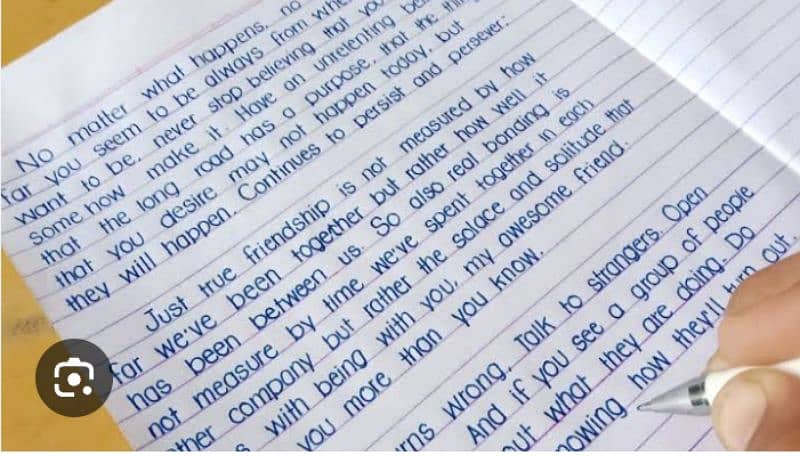 No matter what happens, no
far you seem to be always from
want to be, never stop believing that you
some how make it. Have an unrelenting
that the long road has a purpose, that the
that you desire may not happen today, but
they will happen. Continues to persist and persever.
Just true friendship is not measured by how
far we've been together but rather how well it
has been between us. So also real bonding is
not measure by time we've spent together in each
other company but rather the solace and solitude that
with being with you, my awesome friend.
you more than you know.
wrong. Talk to strangers. Open
And if you see a group of people
what they are doing. Do
how they'll turn out.